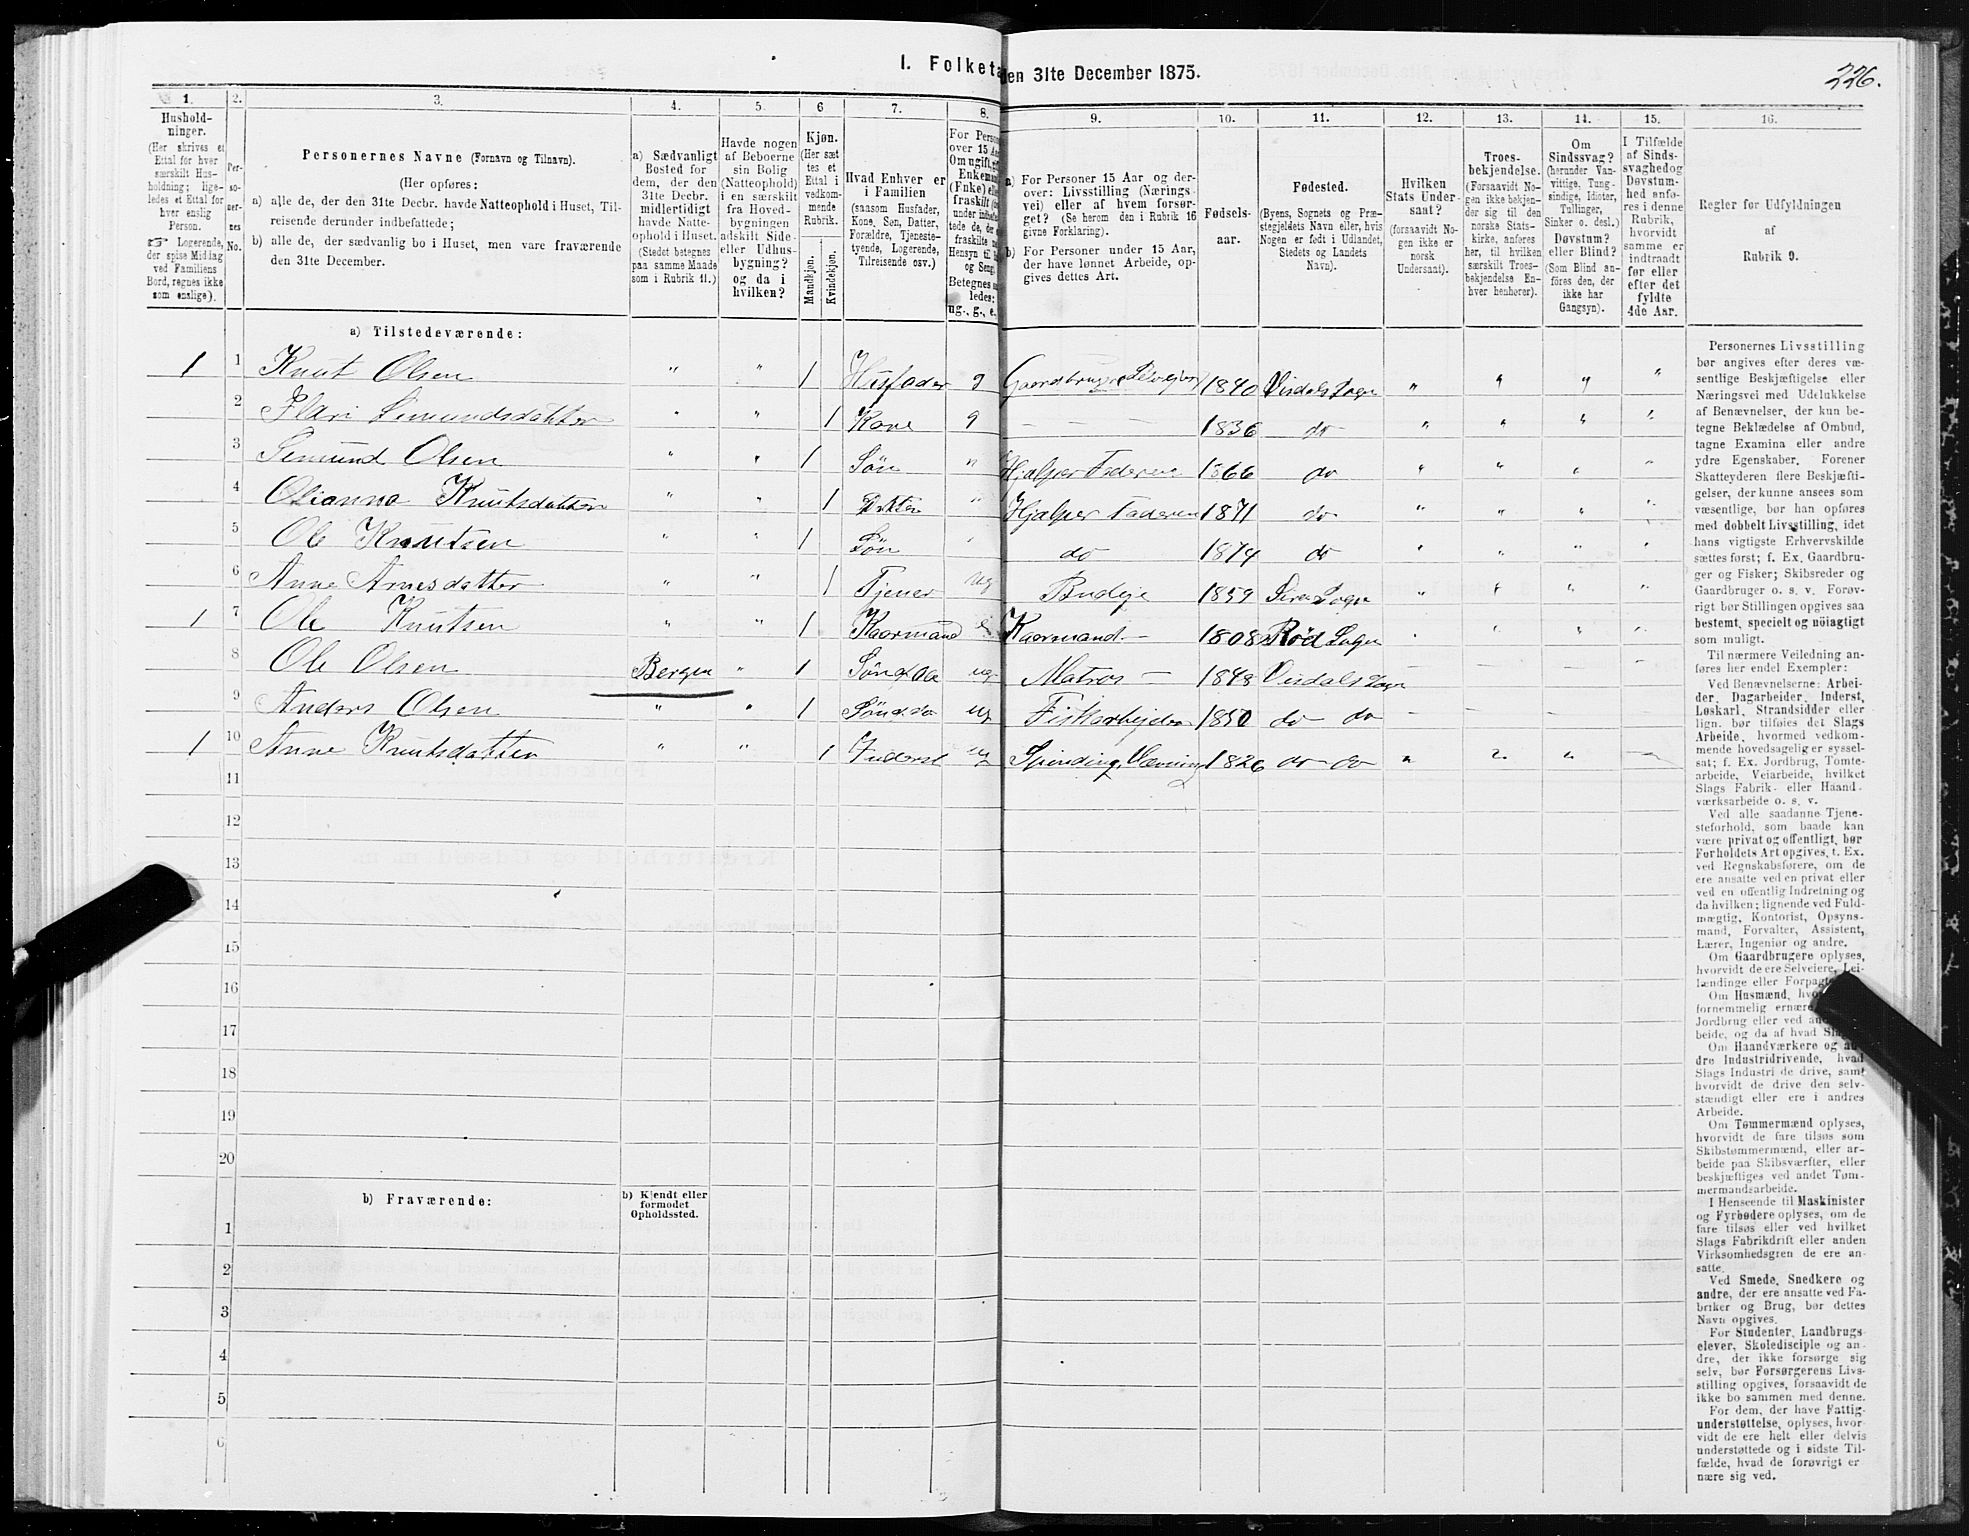 I. Folketa
en 31te December 1875.
226.
1.
Hushold-
ninger.
(Her skrives et
Ettal for hver
særskilt Hus-
holdning; lige-
ledes et Ettal for
hver enslig
Person.
Logerende,
der spise Middag
ved Familiens
Bord, regnes ikke
som enslige).
2.
Per-
so-
ner-
nes
No.
3.
Personernes Navne (Fornavn og Tilnavn).
(Her opføres:
a) alle de, der den 31te Decbr. havde Natteophold i Huset, Til-
reisende derunder indbefattede;
b) alle de, der sædvanlig bo i Huset, men vare fraværende
den 31te December.
4.
a) Sædvanligt
Bosted for
dem, der den
31te Decbr.
midlertidigt
havde Natte-
ophold i Huset.
(Stedet betegnes
paa samme Maade
som i Rubrik 11.)
5.
Havde nogen
af Beboerne
sin Bolig
(Natteophold)
i en særskilt
fra Hoved-
bygningen
adskilt Side-
eller Udhus-
bygning?
og da i
hvilken?
6
Kjøn.
(Her sæt
tes et
Ettal i
vedkom-
mende
Rubrik.
Mandkjøn.
Kvindekjøn.
7.
Hvad Enhver er
i Familien
(saasom Husfader,
Kone, Søn, Datter,
Forældre, Tjeneste-
tyende, Logerende,
Tilreisende osv.)
8.
For Perso
over 15 Aar
Om ugift, g
Enkema
(Enke) el
fraskilt
under indbe
tede de, der
fraskilte
Hensyn til
og Seng.
Betegnes s
ledes:
ug., g., e.,
9.
a) For Personer 15 Aar og der-
over: Livsstilling (Nærings-
vei) eller af hvem forsør-
get? (Se herom den i Rubrik 16
givne Forklaring).
b) For Personer under 15 Aar,
der have lønnet Arbeide, op-
gives dettes Art.
10.
Fødsels-
aar.
11.
Fødested.
(Byens, Sognets og Præ-
stegjeldets Navn eller, hvis
Nogen er født i Udlandet,
Stedets og Landets
Navn).
12.
Hvilken
Stats Under-
saat?
(forsaavidt No-
gen ikke er
norsk
Undersaat).
13.
Troes-
bekjendelse.
(Forsaavidt No-
gen ikke bekjen-
der sig til den
norske Stats-
kirke, anføres
her, til hvilken
særskilt Troes-
bekjendelse En-
hver henhører).
14.
Om
Sindssvag?
(herunder Van-
vittige, Tung-
sindige, Idioter,
Tullinger,
Sinker o. desl.)
Døvstum?
eller Blind?
(Som Blind an-
føres den, der
ikke har
Gangsyn).
15.
I Tilfælde
af Sinds-
svaghed og
Døvstum-
hed anfø-
res i denne
Rubrik,
hvorvidt
samme er
indtraadt
før eller
efter det
fyldte
4de Aar.
16.
Regler for Udfyldningen
af
Rubrik 9.
a) Tilstedeværende:
1 1 Knut Olsen " " 1 Husfader g Gaardbruger Selveier 1840 Visdals Sogn " " " "
2 Mari Simundsdatter " " 1 Kone g — — — 1836 do " " " "
3 Simund Olsen " " 1 Søn " Hjælper Faderen 1866 do " " " "
4 Olianna Knutsdatter " " 1 Datter " Hjælper Faderen 1871 do " " " "
5 Ole Knutsen " " 1 Søn " do 1874 do " " " "
6 Anne Arnesdatter " " 1 Tjener ug Budeje 1859 Sogn " " " "
1 7 Ole Knutsen " " 1 Kaarmand e Kaarmand — 1808 Rød Sogn " " " "
8 Ole Olsen Bergen " 1 Søn ug Matros — 1848 Visdals Sogn — — — —
9 Anders Olsen " " 1 Søn ug 1850 do — do — — — —
1 10 Anne Knutsdatter " " 1 Inderst ug Spinding, Vævning 1826 do — do " " " —
11
12
13
14
15
16
17
18
19
20
b) Fraværende:
b) Kjendt eller
formodet
Opholdssted.
1
2
3
4
5
6
Personernes Livsstilling
bør angives efter deres væ-
sentlige Beskjæftigelse eller
Næringsvei med Udelukkelse
af Benævnelser, der kun be-
tegne Beklædelse af Ombud,
tagne Examina eller andre
ydre Egenskaber. Forener
Skatteyderen flere Beskjæfti-
gelser, der kunne ansees som
væsentlige, bør han opføres
med dobbelt Livsstilling, idet
hans vigtigste Erhvervskilde
sættes først; f. Ex. Gaardbru-
ger og Fisker; Skibsreder og
Gaardbruger o. s. v. Forøv-
rigt bør Stillingen opgives saa
bestemt, specielt og nøiagtigt
som muligt.
Til nærmere Veiledning an-
føres her endel Exempler:
Ved Benævnelserne: Arbei-
der, Dagarbeider, Inderst,
Løskarl, Strandsidder eller
lign. bør tilføies det Slags
Arbeide, hvormed vedkom-
mende hovedsagelig er syssel-
sat; f. Ex. Jordbrug, Tomte-
arbeide, Veiarbeide, hvilket
Slags Fabrik- eller Haand-
værksarbeide o. s. v.
Ved alle saadanne Tjene-
steforhold, som baade kan
være privat og offentligt, bør
Forholdets Art opgives, t. Ex.
ved Regnskabsførere, om de
ere ansatte ved en privat eller
ved en offentlig Indretning og
da hvilken; lignende ved Fuld-
mægtig, Kontorist, Opsyns-
mand, Forvalter, Assistent,
Lærer, Ingeniør og andre.
Om Gaardbrugere oplyses,
hvorvidt de ere Selveiere, Lei-
lændinge eller Forpagt
Om Husmænd, hvo
fornemmelig ernære
Jordbrug eller ved an
beide, og da af hvad Slag
Om Haandværkere og an-
dre Industridrivende, hvad
Slags Industri de drive, samt
hvorvidt de drive den selv-
stændigt eller ere i andres
Arbeide.
Om Tømmermænd oplyses,
hvorvidt de fare tilsøs som
Skibstømmermænd, eller ar-
beide paa Skibsværfter, eller
beskjæftiges ved andet Tøm-
mermandsarbeide.
I Henseende til Maskinister
og Fyrbødere oplyses, om de
fare tilsøs eller ved hvilket
Slags Fabrikdrift eller anden
Virksomhedsgren de ere an-
satte.
Ved Smede, Snedkere og
andre, der ere ansatte ved Fa-
briker og Brug, bør dettes
Navn opgives.
For Studenter, Landbrugs-
elever, Skoledisciple og an-
dre, der ikke forsørge sig
selv, bør Forsørgerens Livs-
stilling opgives, forsaavidt de
ikke bo sammen med denne.
For dem, der have Fattig-
understøttelse, oplyses, hvor-
vidt de ere helt eller delvis
understøttede og i sidste Til-
fælde, hvad de forøvrigt er-
nære sig ved.